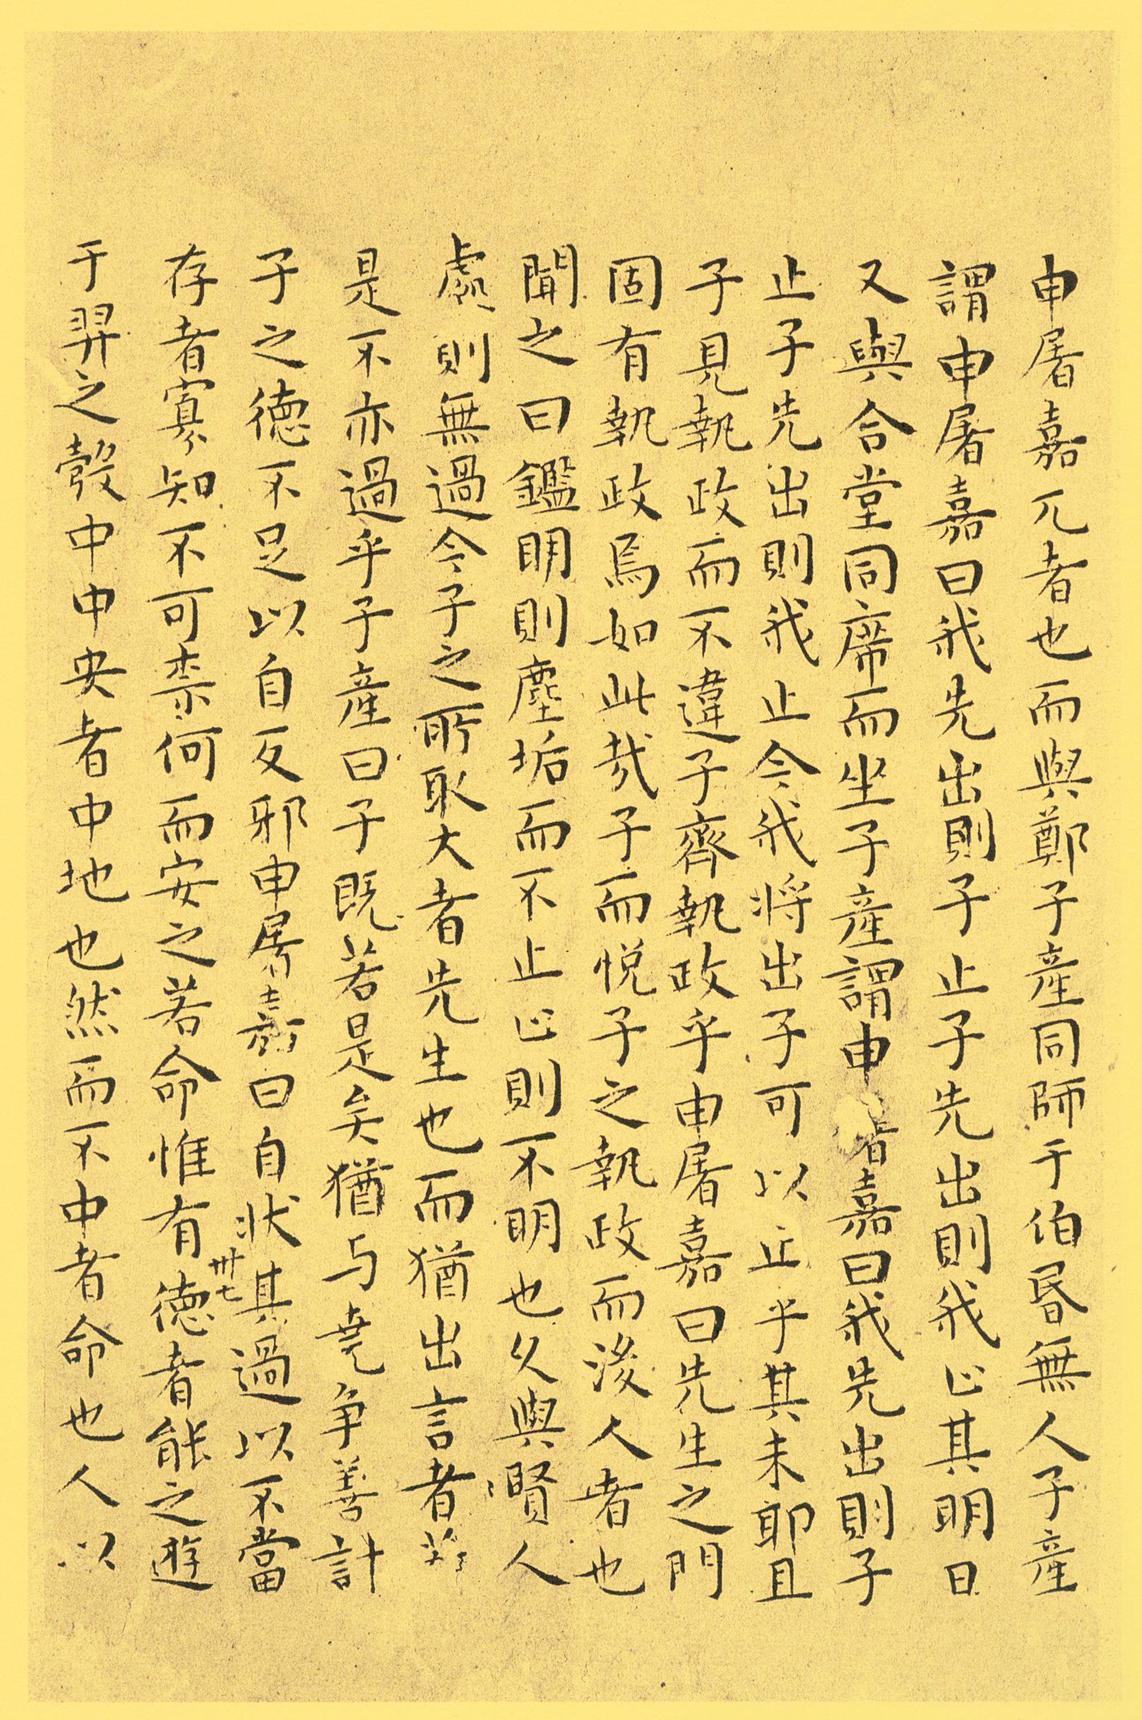 申屠嘉兀者也而與鄭子產同師于伯昏無人子產
謂申屠嘉曰我先出則子止子先出則我止其明日
又與合堂同席而坐子產謂申屠嘉曰我先出則子
止子先出則我止今我將出子可以止乎其未耶且
子見執政而不違子齊執政乎申屠嘉曰先生之門
固有執政焉如此哉子而悅子之執政而後人者也
聞之曰鑑明則塵垢而不止止則不明也久與賢人
處則無過今子之所取大者先生也而猶出言者若
是不亦過乎子產曰子既若是矣猶与堯爭善計
子之德不足以自反邪申屠嘉曰自狀其過以不當
卅七
存者寡知不可柰何而安之若命惟有德者能之遊
于羿之彀中中央者中地也然而不中者命也人以